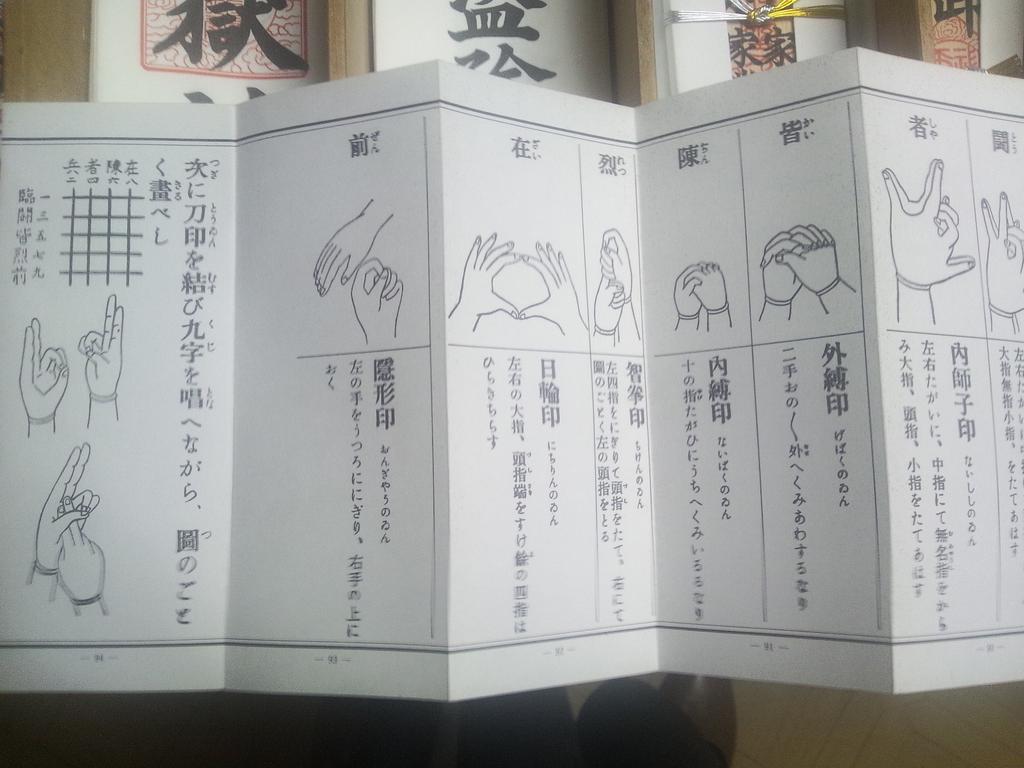 鬪
とう
大指無指小指、をたてあはす
者
しや
內師子印
ないししのゐん
左右たがいに、中指にて無名指をから
み大指、頭指、小指をたてあはす
皆
かい
外縛印
げばくのゐん
二手おの〱外へくみあわするなり
陳
ぢん
內縛印
ないばくのゐん
十の指たがひにうちへくみいるるなり
烈
れつ
智拳印
ちけんのゐん
左四指をにぎりて頭指をたて。右にて
圖のごとく左の頭指をとる
在
ざい
日輪印
にちりんのゐん
左右の大指、頭指端をすけ餘の四指は
ひらきちらす
前
ぜん
隱形印
おんぎやうのゐん
左の手をうつろににぎり、右手の上に
おく
次に刀印を結び九字を唱へながら、圖のごと
く畫べし
在八
陳六
者四
兵二
一三五七九
臨鬪皆烈前
91
92
93
94
嶽
盗
家家